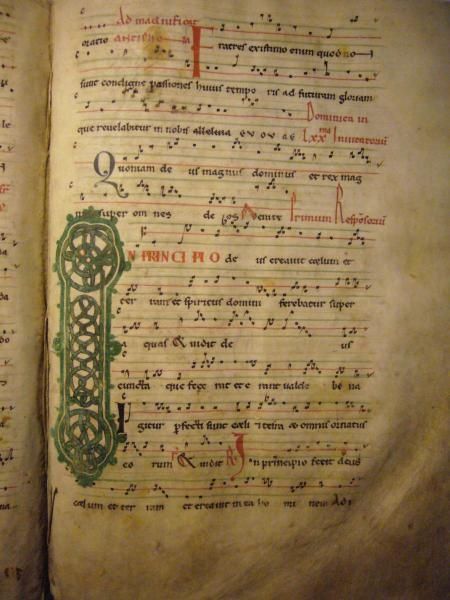 Ad magnificat
oratio antipho F
ratres existimo enim quod no
sunt condigne passiones huius tempo ris ad futuram gloriam
Dominica in
que revelabitur in nobis alleluia e v o v a e lxxma Invitatoriū
Quoniam de us magnus dominus et rex mag
super om nes de os Venite Primum Resp̄soriū
IN PRINCIPIO de us creavit cælum et
ter ram et spiritus domini ferebatur super
a quas Et vidit de us
cuncta que fece rat et e rant valde bo na
Igitur perfecti sunt cæli et terra et omnis ornatus
eo rum Et vidit R In principio fecit deus
cælum et ter ram et creavit in ea ho mi nem Ad i